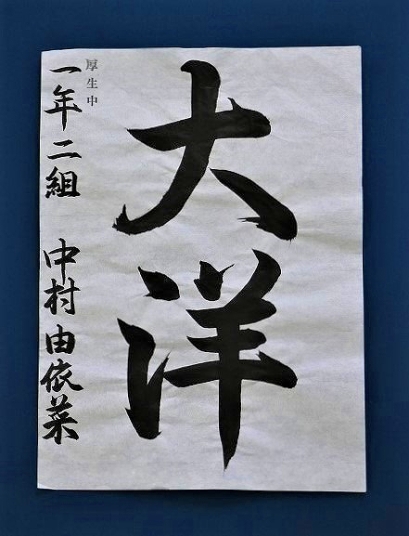 大洋
厚生中
一年二組 中村由依菜